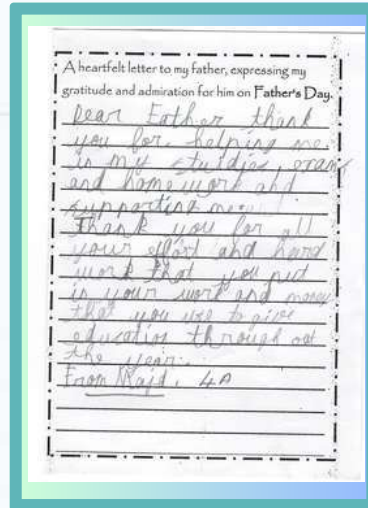 A heartfelt letter to my father, expressing my
gratitude and admiration for him on Father's Day.
Dear Father thank
you for helping me
in my studies, exams
and homework and
supporting me.
Thank you for all
your effort and hard
work that you put
in your work and money
that you use to give
education through out
the year.
From Majd. 4A